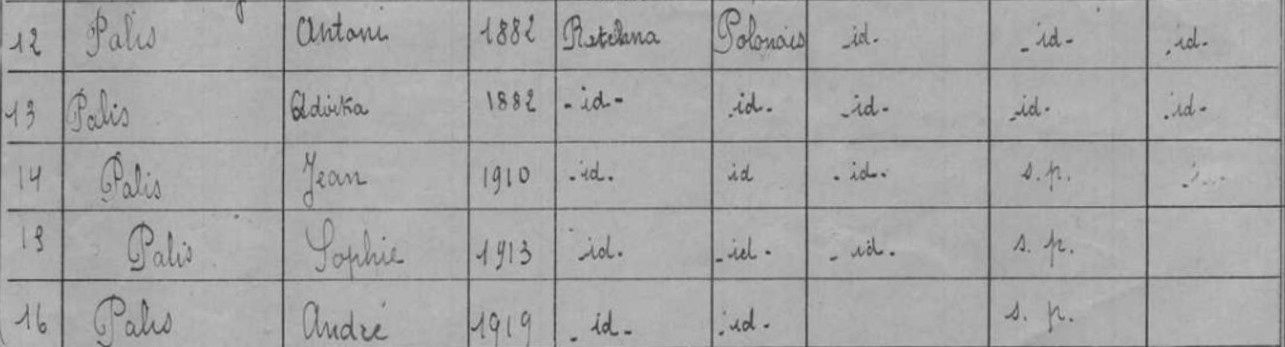 12 Palis Antoni 1882 Retchna Polonais -id- -id- -id-
13 Palis Advika 1882 -id- -id- -id- -id- -id-
14 Palis Jean 1910 -id- id -id- s.p.
15 Palis Sophie 1913 -id- -id- -id- s.p.
16 Palis André 1919 -id- -id- s.p.